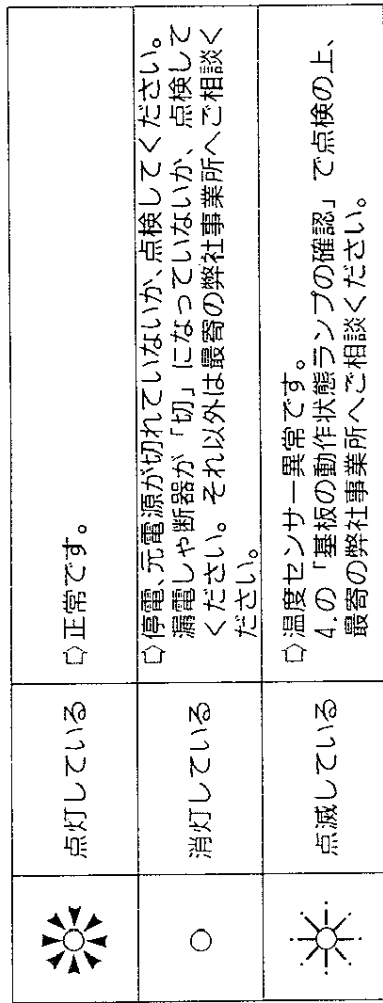 点灯している
⇨正常です。
消灯している
⇨停電、元電源が切れていないか、点検してください。
漏電しゃ断器が「切」になっていないか、点検して
ください。それ以外は最寄の弊社事業所へご相談く
ださい。
点滅している
⇨温度センサー異常です。
4.の「基板の動作状態ランプの確認」で点検の上、
最寄の弊社事業所へご相談ください。